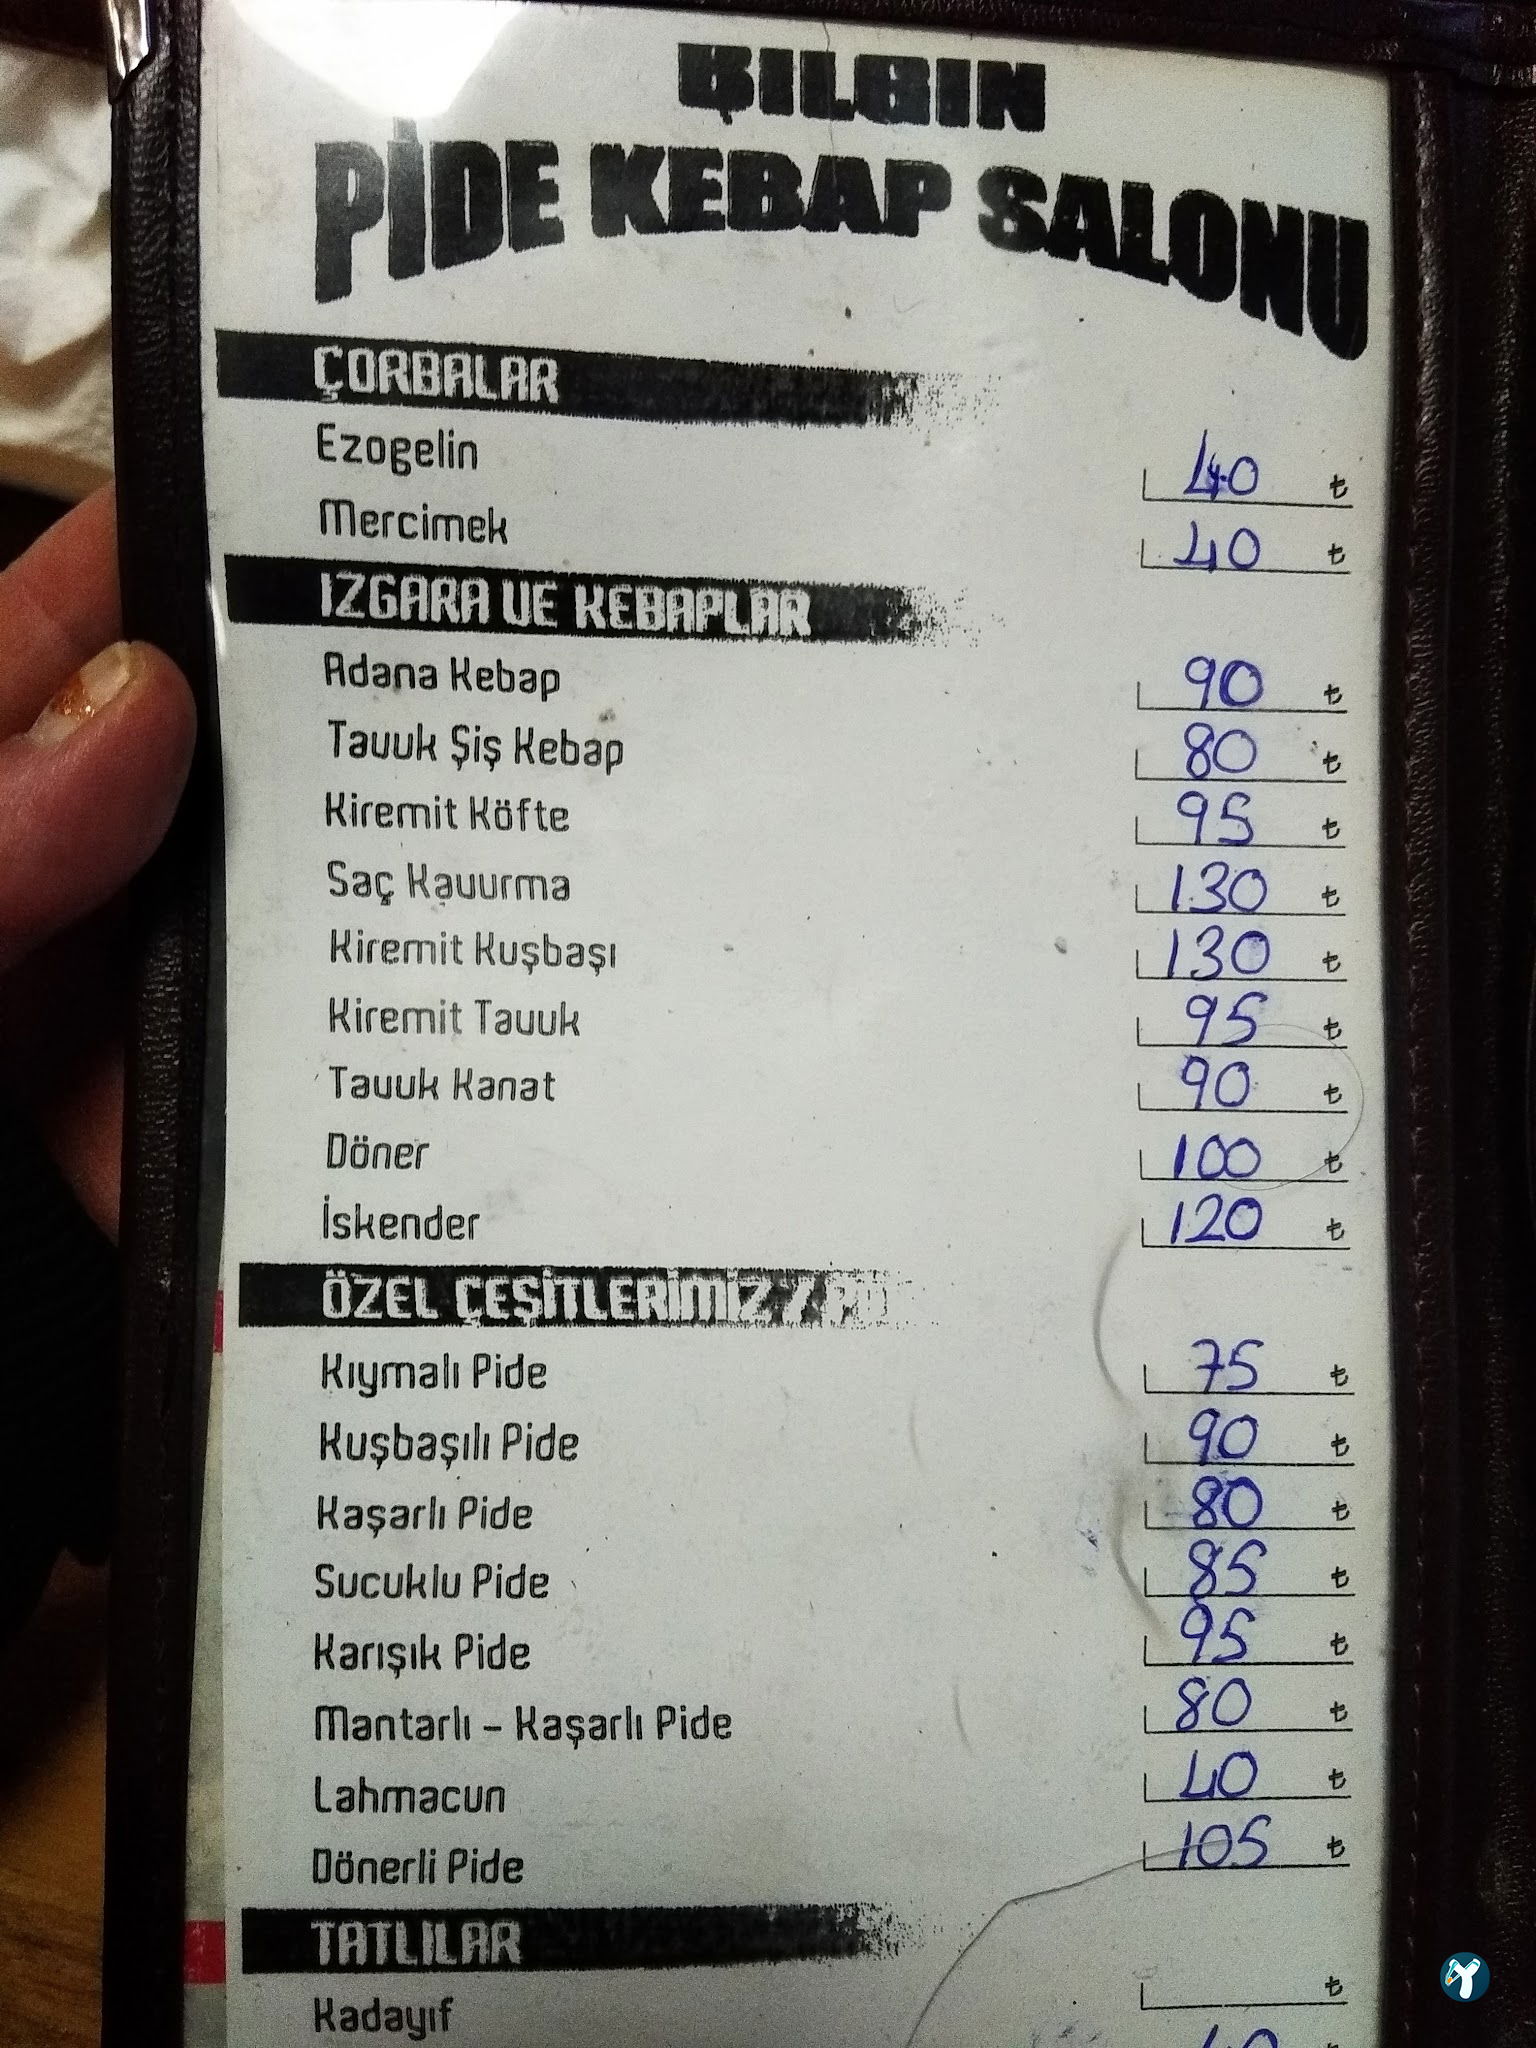 BİLGİN
PİDE KEBAP SALONU
ÇORBALAR
Ezogelin 40 ₺
Mercimek 40 ₺
IZGARA VE KEBAPLAR
Adana Kebap 90 ₺
Tavuk Şiş Kebap 80 ₺
Kiremit Köfte 95 ₺
Saç Kavurma 130 ₺
Kiremit Kuşbaşı 130 ₺
Kiremit Tavuk 95 ₺
Tavuk Kanat 90 ₺
Döner 100 ₺
İskender 120 ₺
ÖZEL ÇEŞİTLERİMİZ /
Kıymalı Pide 75 ₺
Kuşbaşılı Pide 90 ₺
Kaşarlı Pide 80 ₺
Sucuklu Pide 85 ₺
Karışık Pide 95 ₺
Mantarlı - Kaşarlı Pide 80 ₺
Lahmacun 40 ₺
Dönerli Pide 105 ₺
TATLILAR
Kadayıf ₺